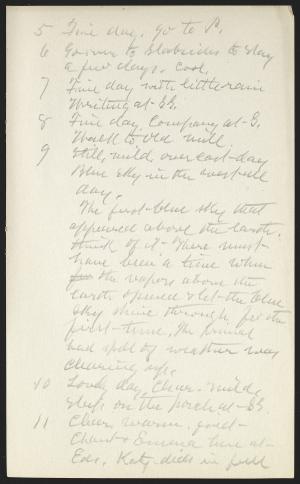 5 Fine day. Go to P.
6 Go over to Slabsides to stay
a few days. Cool.
7 Fine day with little rain
Writing at SS.
8 Fine day, Company at S.
Walk to old mill
9 Still, mild, overcast day
Blue sky in the west all
day.
The first blue sky that
appeared above the earth.
Think of it - There must
have been a time when
for the vapors above the
earth opened & let the blue
sky shine through for the
first time, The primal
bad spell of weather was
clearing up.
10 Lovely day, clear. mild,
sleep on the porch at SS.
11 Clear, warm,
& Emma here at
Eve, Katy-dids in full